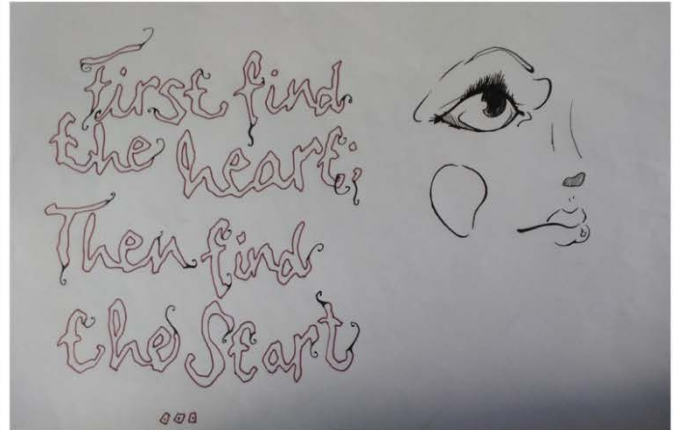 First find
the heart;
Then find
the Start
...